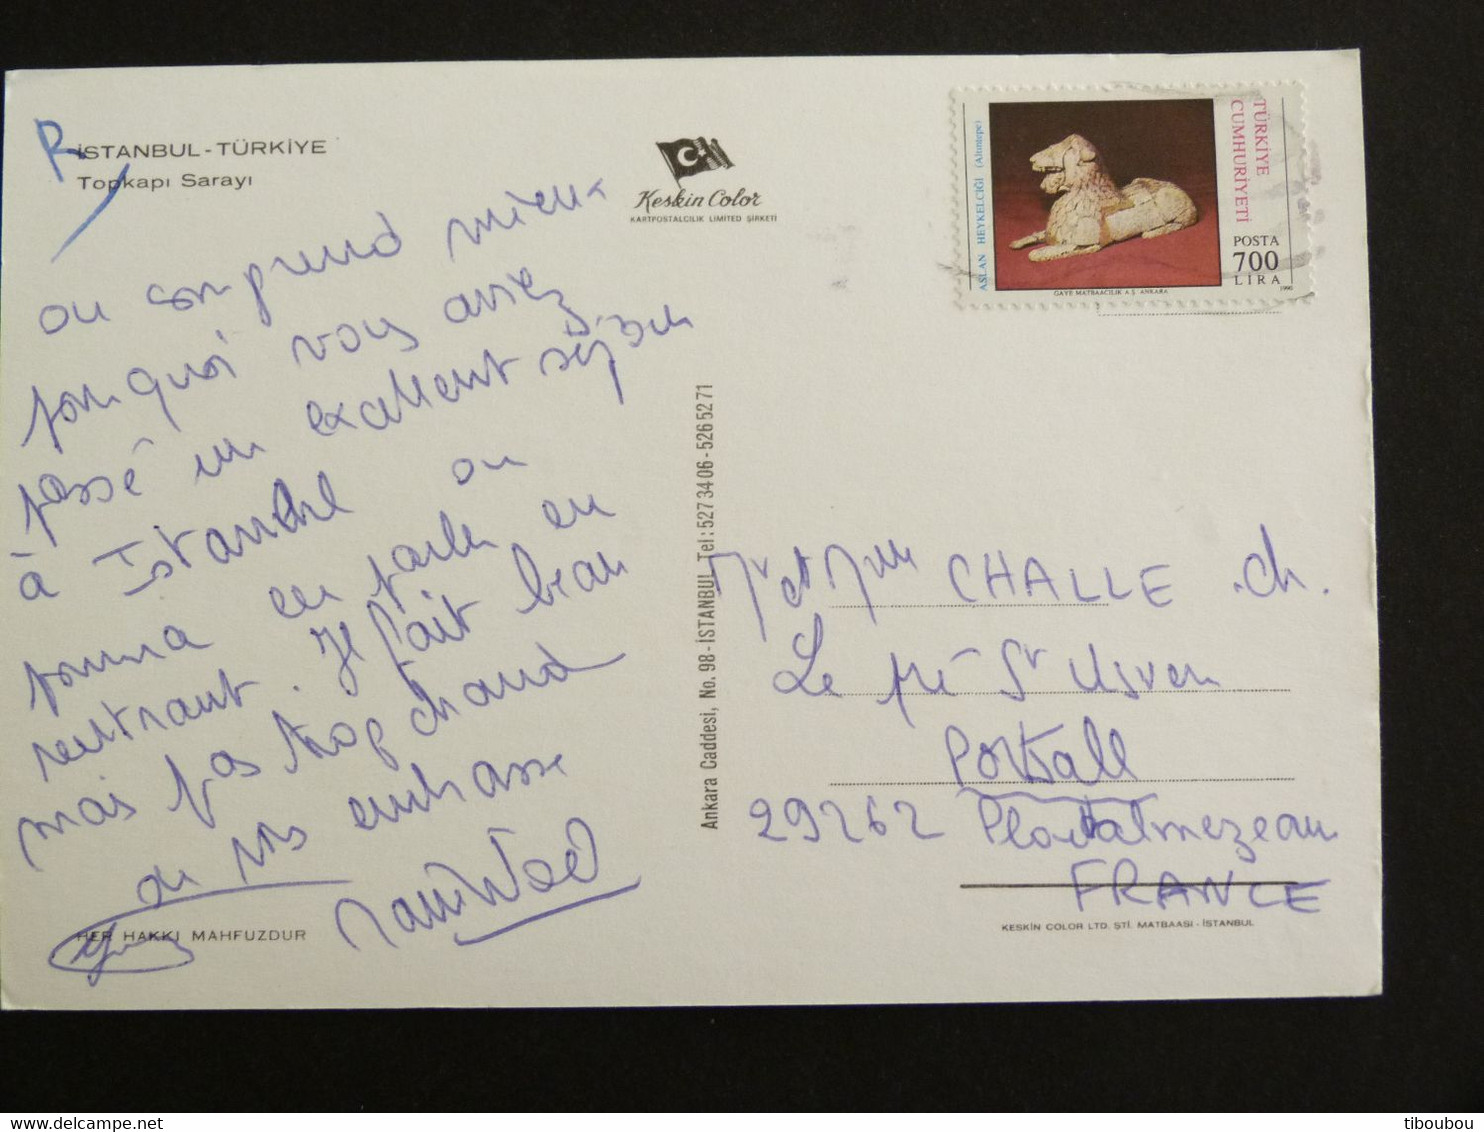 R
İSTANBUL - TÜRKİYE
Topkapı Sarayı
on comprend mieux
pourquoi vous aviez
passé un excellent séjour
à Istanbul on
pourra en parler en
rentrant. Il fait beau
mais pas trop chaud
on vous embrasse
HER HAKKI MAHFUZDUR
Keskin Color
KARTPOSTALCILIK LIMITED ŞİRKETİ
Ankara Caddesi, No. 98 - İSTANBUL Tel: 527 34 06 - 526 52 71
ASLAN HEYKELCİĞİ (Altıntepe)
TÜRKİYE
CUMHURİYETİ
POSTA
700
LİRA
GAYE MATBAACILIK A.Ş. ANKARA
1990
Mr et Mme CHALLE ch.
Le pré St Usven
Portsall
29262 Ploudalmezeau
FRANCE
KESKİN COLOR LTD. ŞTİ. MATBAASI - İSTANBUL
tiboubou